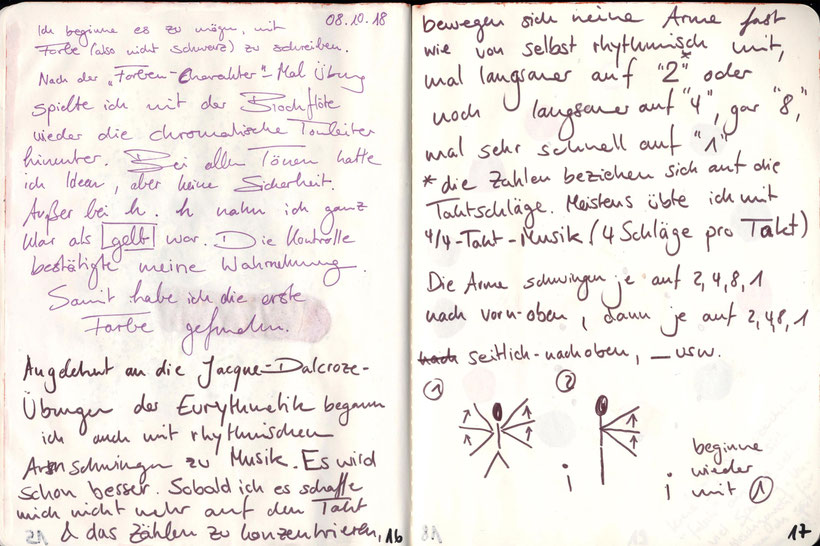 08.10.18
Ich beginne es zu mögen, mit
Farbe (also nicht schwarz) zu schreiben.
Nach der „Farben-Charakter"-Mal Übung
spielte ich mit der Blockflöte
wieder die chromatische Tonleiter
hinunter. Bei allen Tönen hatte
ich Ideen, aber keine Sicherheit.
Außer bei h. h nahm ich ganz
klar als gelb war. Die Kontrolle
bestätigte meine Wahrnehmung.
Somit habe ich die erste
Farbe gefunden.
Angelehnt an die Jacque-Dalcroze-
Übungen der Eurythmetik begann
ich auch mit rhythmischen
Armschwingen zu Musik. Es wird
schon besser. Sobald ich es schaffe
mich nicht mehr auf den Takt
& das Zählen zu konzentrieren,
16
bewegen sich meine Arme fast
wie von selbst rhythmisch mit,
mal langsamer auf "2"* oder
noch langsamer auf "4", gar "8,"
mal sehr schnell auf "1"
* die Zahlen beziehen sich auf die
Taktschläge. Meistens übte ich mit
4/4-Takt-Musik (4 Schläge pro Takt)
Die Arme schwingen je auf 2,4,8,1
nach vorn-oben, dann je auf 2,4,8,1
nach seitlich-nach oben, _ usw.
1 2
beginne
wieder
mit 1
17
15
18